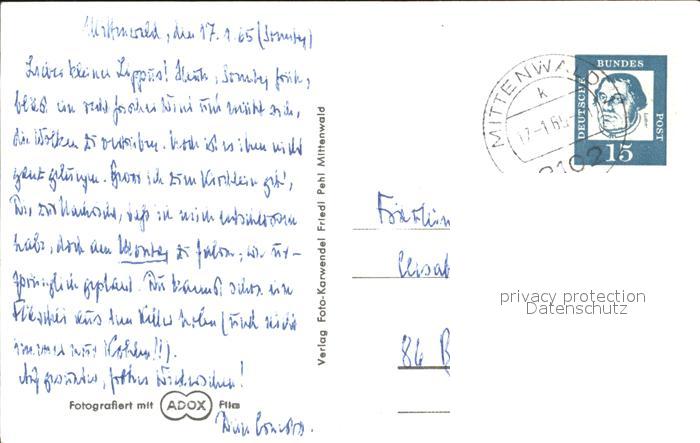 Mittenwald, den 17.1.65 (Sonntag)
Lieber kleiner Lippus! Heute, Sonntag früh,
bläst ein recht frischer Wind und müht sich,
die Wolken zu vertreiben. Noch ist es ihm nicht
ganz gelungen. Bevor ich zum Kirchlein geh',
Dir zur Nachricht, daß ich mich entschlossen
habe, doch am Montag zu fahren, wie ur-
sprünglich geplant. Du kannst schon eine
Flasche aus dem Keller holen (und nicht
immer nur Kohlen!!).
Auf gesundes, frohes Wiedersehen!
Dein
Fotografiert mit ADOX Film
Verlag Foto-Karwendel Friedl Pehl Mittenwald
MITTENWALD
k
17-1.65
8102
DEUTSCHE BUNDES POST
15
Fräulein
Elisab
86 B
privacy protection
Datenschutz